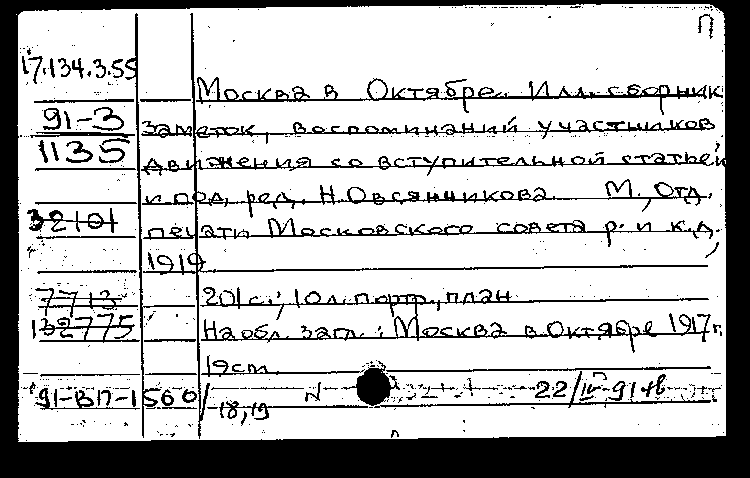 П
17.134.3.55
Москва в Октябре. Илл. сборник
91-3
заметок, воспоминаний участников
1135
движения со вступительной статьей
и под ред. Н. Овсянникова. М., Отд.
32101
печати Московского совета р. и к.д.,
1919
7713
201 с.; 10 л. портр., план
132775
На обл. загл.: Москва в Октябре 1917 г.
19cm
91-В17-1560/18,19
22/IV-91